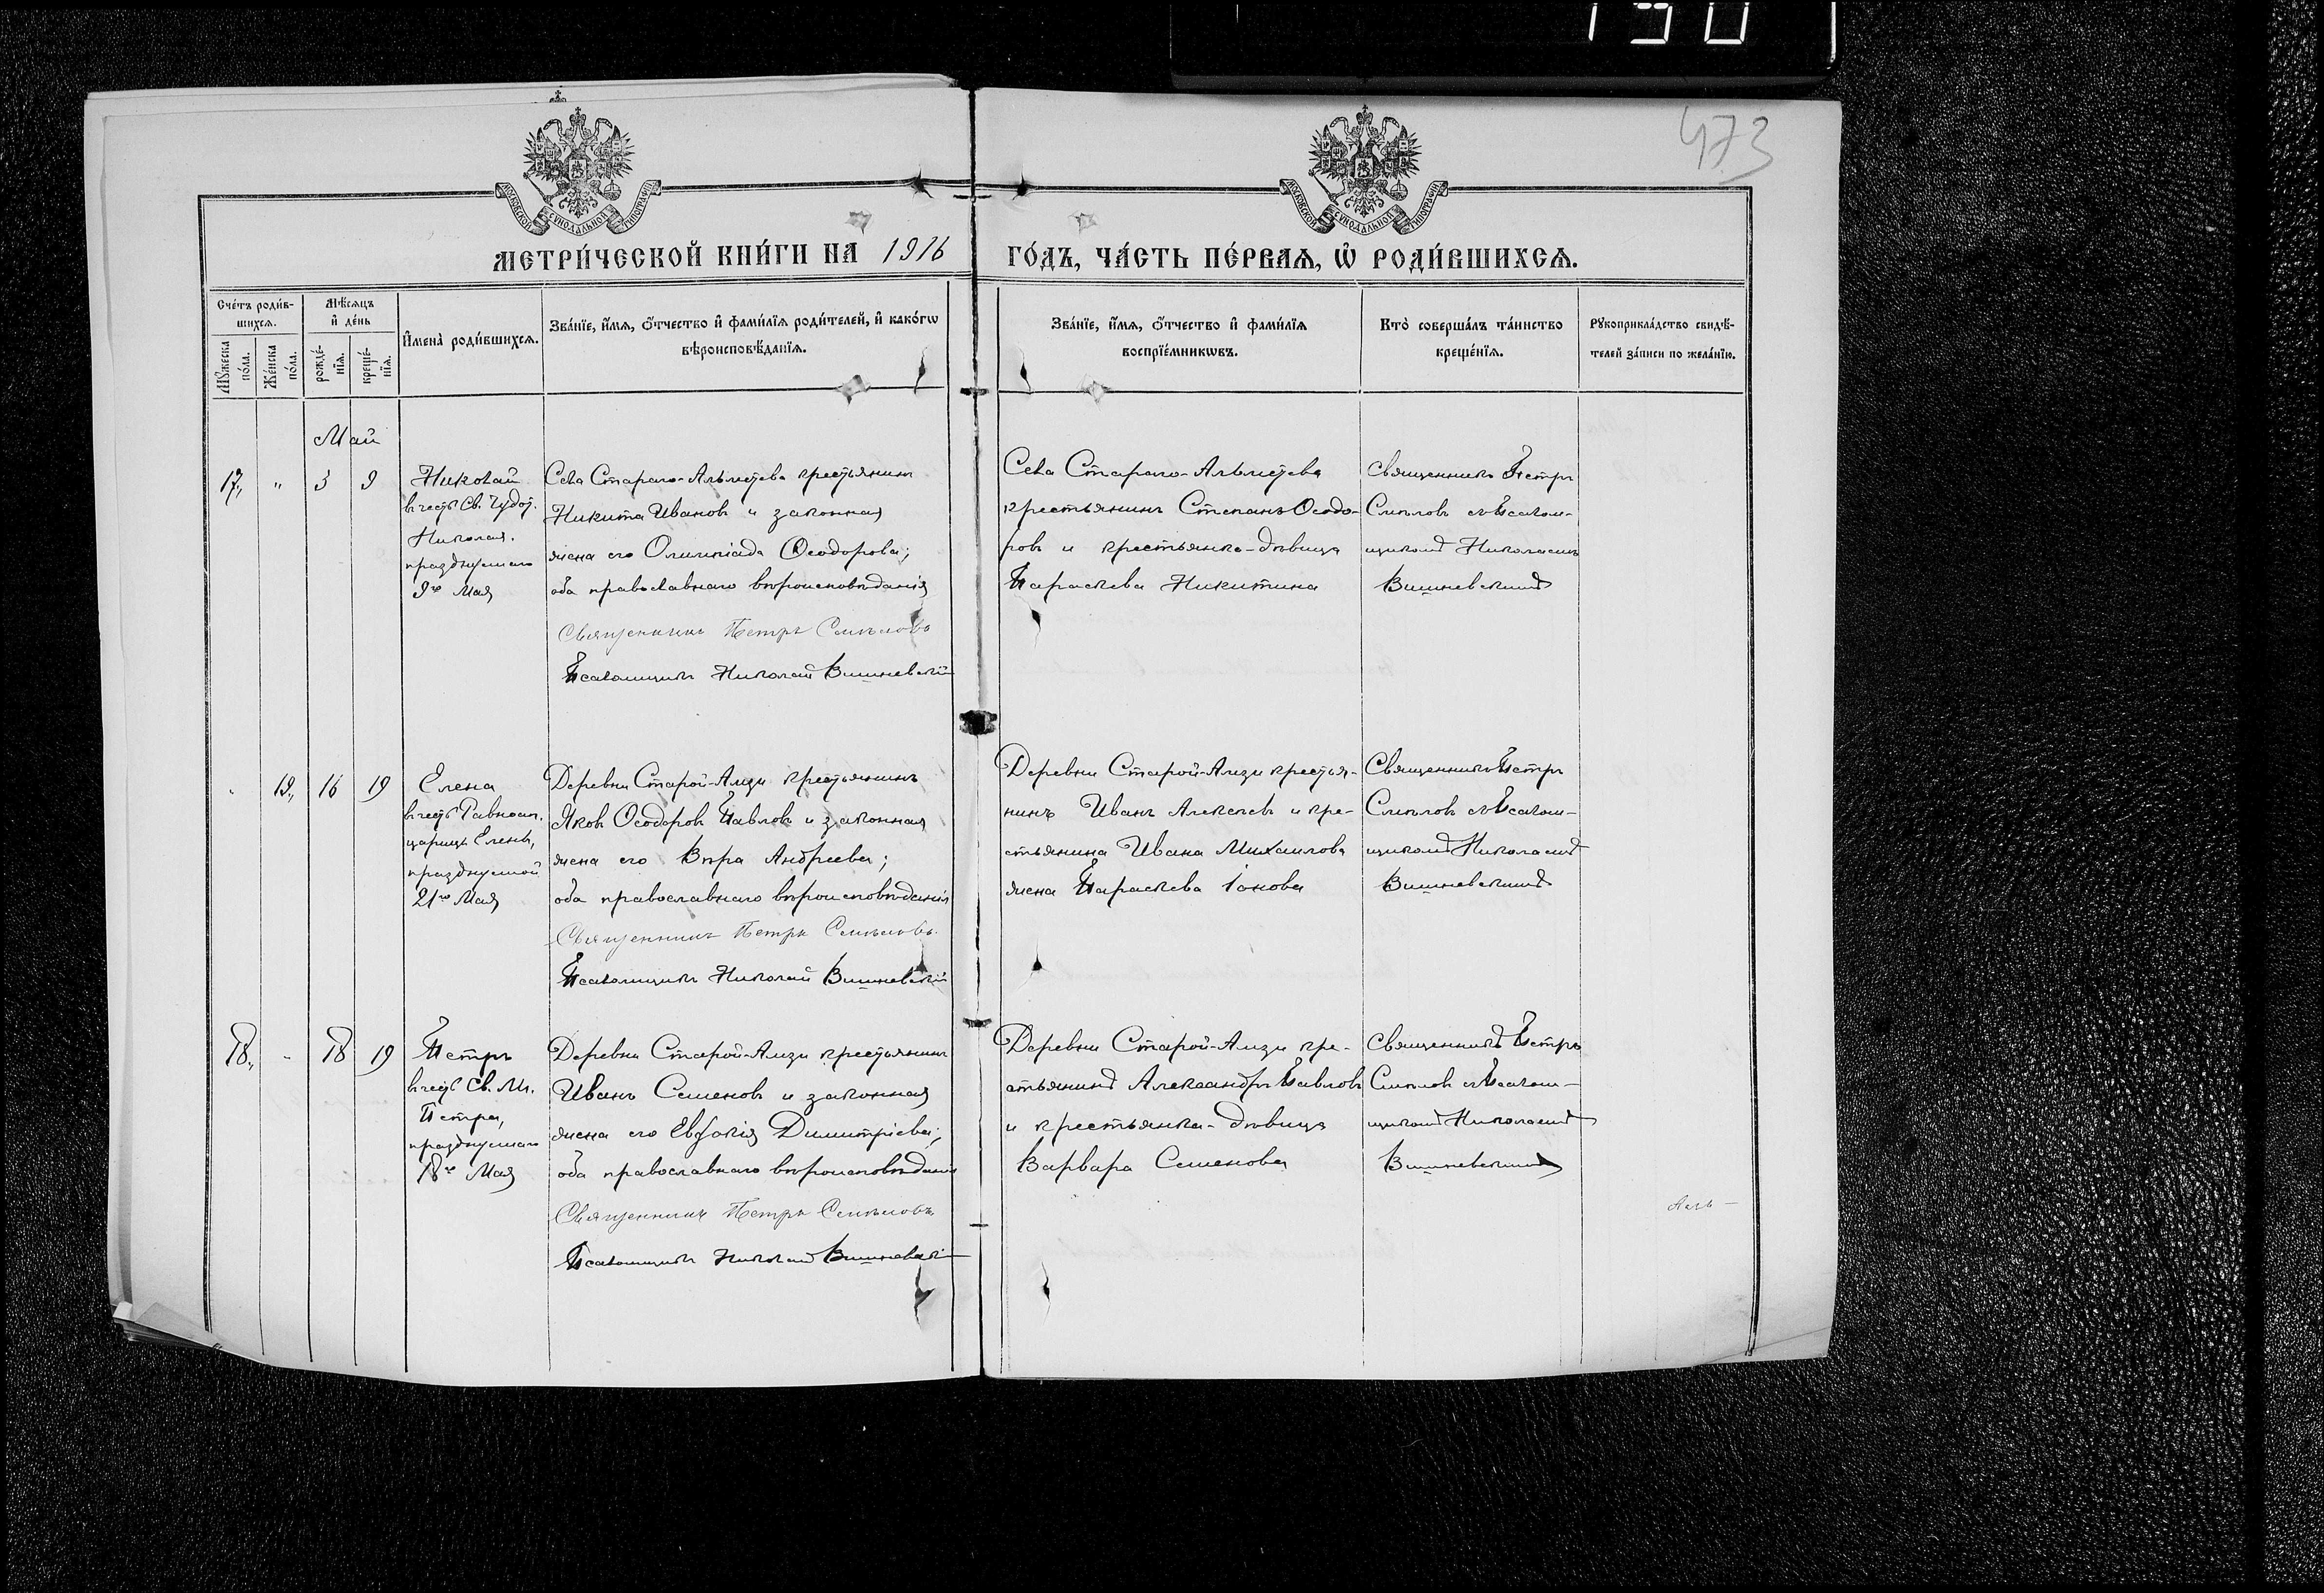 190
473
МОСКОВСКОЙ СУНОДАЛЬНОЙ ТИПОГРАФІИ
МОСКОВСКОЙ СУНОДАЛЬНОЙ ТИПОГРАФІИ
МЕТРИ́ЧЕСКОЙ КНИ́ГИ НА 1916 ГО́ДЪ, ЧА́СТЬ ПЕ́РВАЯ, Ѡ҆ РОДИ́ВШИХСЯ.
Сче́тъ роди́в-
шихся.
Мꙋжеска по́ла.
Же́нска по́ла.
Мѣ́сяцъ
и҆ де́нь
рожде́-
нїя.
креще́-
нїя.
И҆мена̀ роди́вшихся.
Зва́нїе, и҆́мя, ѻ҆́тчество и҆ фами́лїя роди́телей, и҆ како́гѡ
вѣроисповѣ́данїя.
Зва́нїе, и҆́мя, ѻ҆́тчество и҆ фами́лїя
воспрїе́мникѡвъ.
Кто̀ соверша́лъ та́инство
креще́нїя.
Рꙋкоприкла́дство свидѣ́-
телей за́писи по жела́нїю.
Май
17, " 3 9
Николай
въ честь Св. Чудот.
Николая.
празднуемаго
9го Мая
Села Стараго-Альметева крестьянинъ
Никита Ивановъ и законная
жена его Олимпіада Ѳеодорова;
оба православнаго вѣроисповѣданія
Священникъ Петръ Смѣловъ
Псаломщикъ Николай Вишневскій
Села Стараго-Альметева
крестьянинъ Степанъ Ѳеодо-
ровъ и крестьянка-дѣвица
Параскева Никитина
Священникъ Петръ
Смѣловъ съ Псалом-
щикомъ Николаемъ
Вишневскимъ
19, 16 19
Елена
въ честь Равноап.
царицы Елены,
празднуемой
21го Мая
Деревни Старой-Амзи крестьянинъ
Яковъ Ѳеодоровъ Павловъ и законная
жена его Вѣра Андреева;
оба православнаго вѣроисповѣданія
Священникъ Петръ Смѣловъ.
Псаломщикъ Николай Вишневскій
Деревни Старой-Амзи крестья-
нинъ Иванъ Алексѣевъ и кре-
стьянина Ивана Михаилова
жена Параскева Іонова
Священникъ Петръ
Смѣловъ съ Псалом-
щикомъ Николаемъ
Вишневскимъ
18, - 18 19
Петръ
въ честь Св. Мч.
Петра,
празднуемаго
18го Мая
Деревни Старой-Амзи крестьянинъ
Иванъ Семеновъ и законная
жена его Евдокія Димитріева;
оба православнаго вѣроисповѣданія
Священникъ Петръ Смѣловъ
Псаломщикъ Николай Вишневскій
Деревни Старой-Амзи кре-
стьянинъ Александръ Павловъ
и крестьянка-дѣвица
Варвара Семенова
Священникъ Петръ
Смѣловъ съ Псалом-
щикомъ Николаемъ
Вишневскимъ